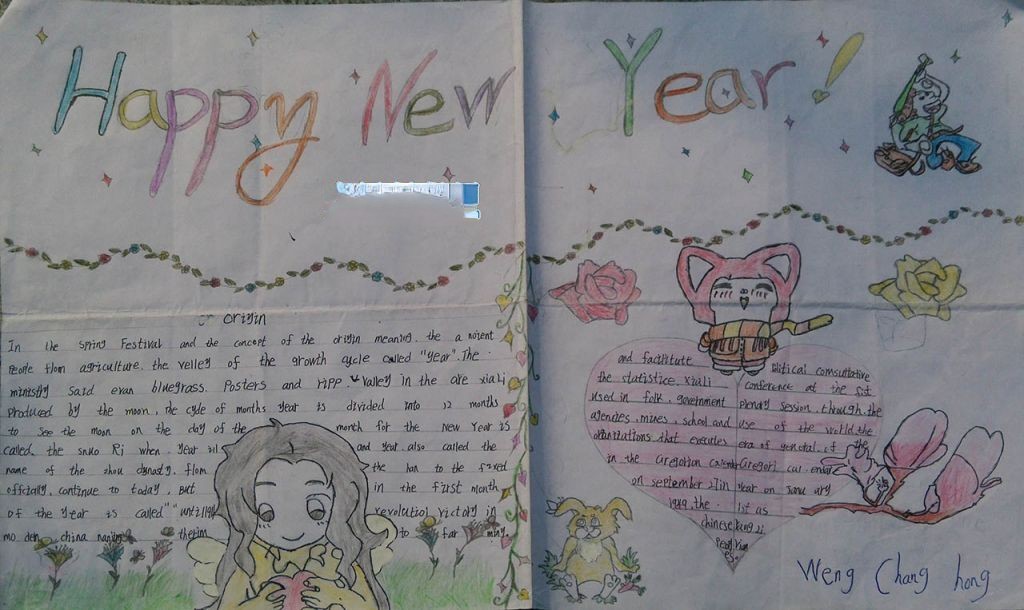 Happy New Year!
origin
In the Spring Festival and the concept of the origin meaning. the a ncient
People from agriculture. the velley of the growth cycle called "year". The
ministry said evan bluegrass. Posters and ripp valley in the are xia Li
Produced by the moon, the cyde of months year is divided into 12 months
to see the moon on the day of the month for the New Year is
called, the Ri when. Year and year. also called the
name of the zhou dynasty. from the han to the fixed
officially. continue to today, but in the first month
of the Year is called " revolutiol victory in
mo den. china to far ming.
and facititute litical comsultative
the statistice. xiali conference at the fist
used in folk. government plenary session. through. the
agencies, mines, school and use of the world. the
that executes era of general. of the
in the Gregorian calendar Gregori cal. endar
on september 27 in year on Janu ary
1949. the 1st as
chinese
Weng Chang hong